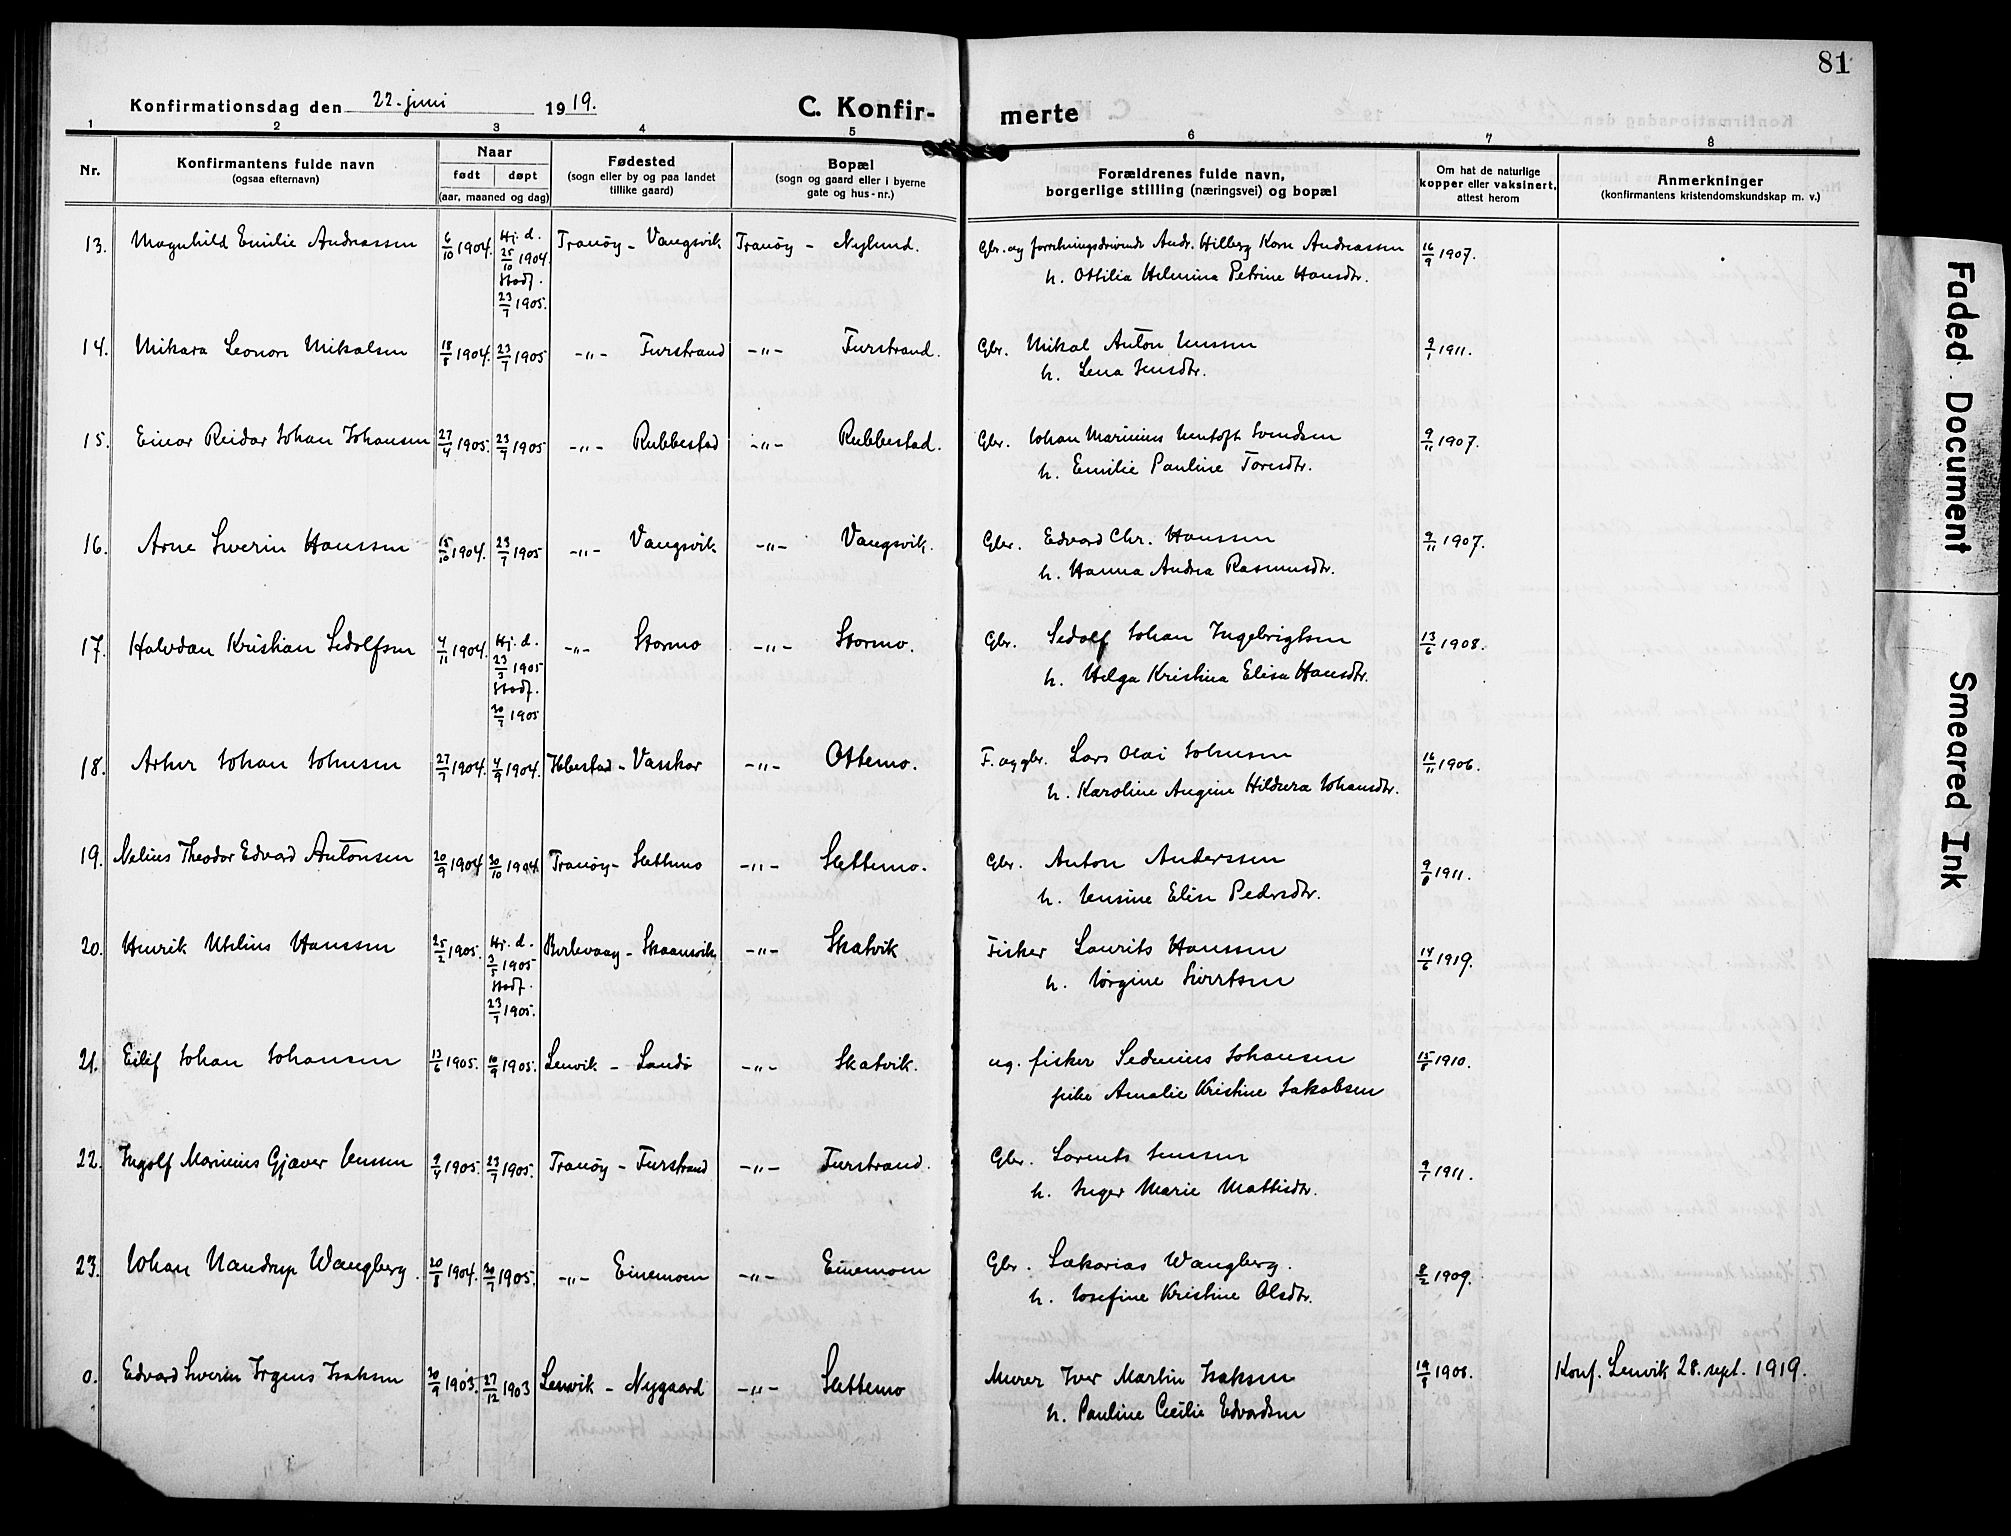 81
Konfirmationsdag den 22. juni 1919.
C. Konfirmerte
1 2 3 4 5 6 7 8
Nr.
Konfirmantens fulde navn
(ogsaa efternavn)
Naar
født døpt
(aar, maaned og dag)
Fødested
(sogn eller by og paa landet
tillike gaard)
Bopæl
(sogn og gaard eller i byerne
gate og hus-nr.)
Forældrenes fulde navn,
borgerlige stilling (næringsvei) og bopæl
Om hat de naturlige
kopper eller vaksinert,
attest herom
Anmerkninger
(konfirmantens kristendomskundskap m. v.)
13. Magnhild Emilie Andreassen 6/10 1904. Hj. d. 25/10 1904. Stadf. 23/7 1905. Tranöy - Vangsvik Tranöy - Nylund. Gbr. og forretningsdrivende Andr. Hilberg Korn Andreassen 16/9 1907.
h. Ottilia Helmina Petrine Hansdtr.
14. Mikara Leonore Mikalsen 18/8 1904. 23/7 1905 -"- Furstrand -"- Furstrand. Gbr. Mikal Anton Jenssen 9/1 1911.
h. Lena Jensdtr.
15. Einar Reidar Johan Johansen 27/4 1905. 23/7 1905 -"- Rubbestad -"- Rubbestad. Gbr. Johan Marinius Jentoft Svendsen 9/11 1907.
h. Emilie Pauline Toresdtr.
16. Arne Severin Hanssen 15/10 1904. 23/7 1905 -"- Vangsvik -"- Vangsvik. Gbr. Edvard Chr. Hanssen 9/11 1907.
h. Hanna Andrea Rasmusdtr.
17. Halvdan Kristian Sedolfsen 4/11 1904. Hj. d. 23/3 1905 Stadf. 30/7 1905 -"- Stormo -"- Stormo. Gbr. Sedolf Johan Ingebrigtsen 13/6 1908.
h. Helga Kristina Elisa Hansdtr.
18. Artur Johan Johnsen 27/7 1904. 4/9 1904. Ibbestad - Vasskar -"- Ottemo. F. og gbr. Lars Olai Johnsen 16/11 1906.
h. Karoline Angine Hildura Johansdtr.
19. Nelius Theodor Edvard Antonsen 20/9 1904 30/10 1904. Tranöy - Slettmo -"- Slettemo. Gbr. Anton Anderssen 9/8 1911.
h. Jensine Elise Pedersdtr.
20. Henrik Utelius Hanssen 25/2 1905. Hj. d. 3/5 1905 Stadf. 23/7 1905. Berlevaag - Skaansvik -"- Skatvik Fisker Laurits Hanssen 14/6 1919.
h. Jörgine Sivertsen
21. Eilif Johan Johansen 13/6 1905. 10/9 1905. Lenvik - Sandö -"- Skatvik. ug. fisker Sedenius Johansen 15/8 1910.
pike Amalie Kristine Jakobsen
22. Ingolf Marinius Gjæver Jenssen 2/4 1905. 23/7 1905. Tranöy - Furstrand -"- Furstrand. Gbr. Lorents Jenssen 9/1 1911.
h. Inger Marie Mattisdtr.
23. Johan Nandrup Wangberg. 20/8 1904. 30/7 1905. -"- Einemoen -"- Einemoen Gbr. Sakarias Wangberg. 8/2 1909.
h. Josefine Kristine Olsdtr.
0. Edvard Severin Irgens Isaksen 30/9 1903. 27/12 1903 Lenvik - Nygaard -"- Slettemo Murer Iver Martin Isaksen 19/8 1908. Konf. Lenvik 28. sept. 1919.
h. Pauline Cecilie Edvardsen
Faded Document
Smeared Ink